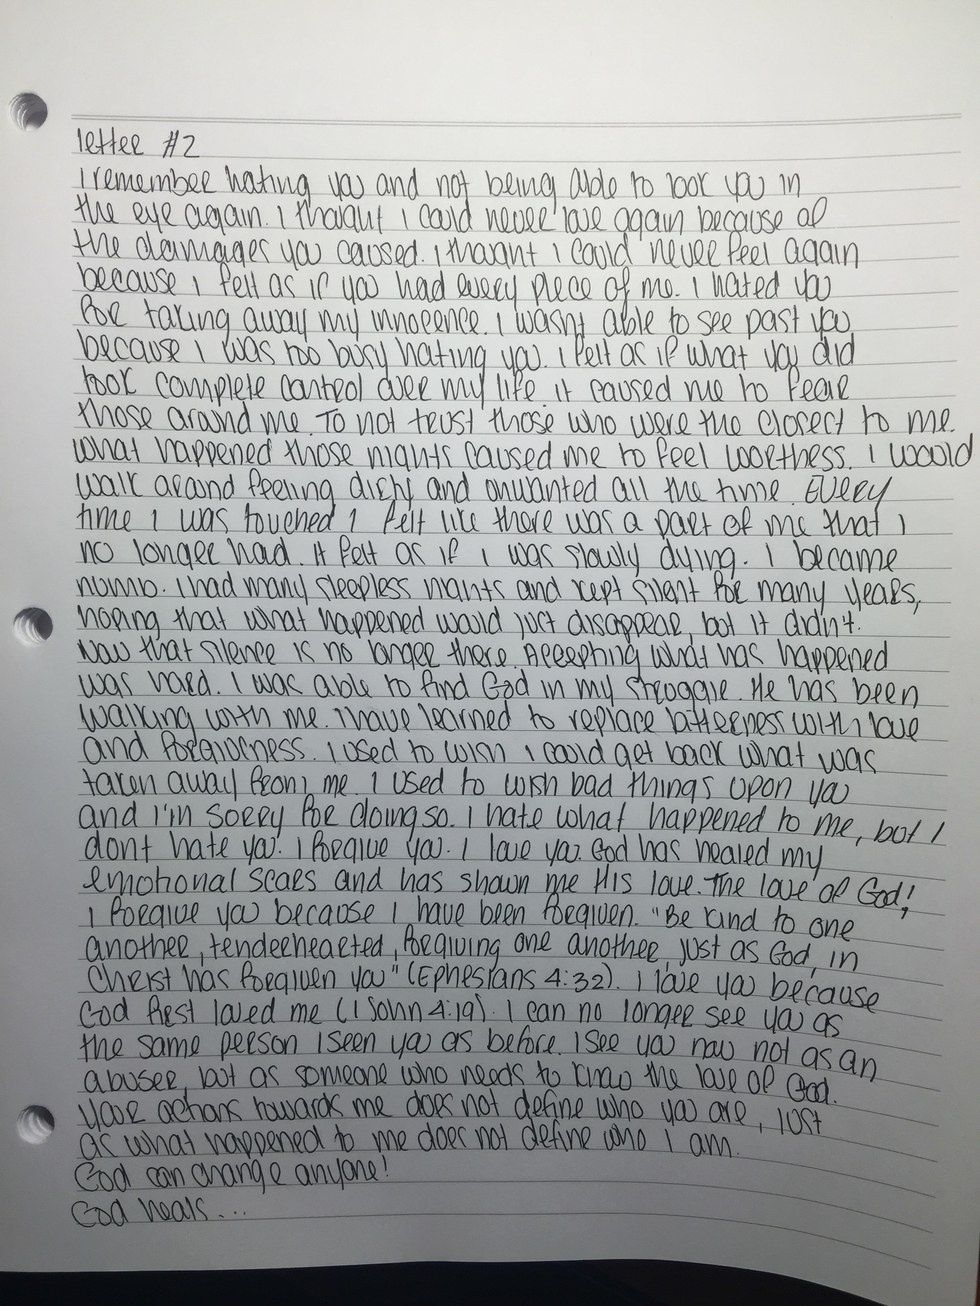 letter #2
I remember hating you and not being able to look you in
the eye again. I thought I could never love again because of
the damages you caused. I thought I could never feel again
because I felt as if you had every piece of me. I hated you
for taking away my innocence. I wasn't able to see past you
because I was too busy hating you. I felt as if what you did
took complete control over my life. it caused me to fear
those around me. To not trust those who were the closest to me.
What happened those nights caused me to feel worthess. I would
walk around feeling dirty and unwanted all the time. Every
time I was touched I felt like there was a part of me that I
no longer had. It felt as if I was slowly dying. I became
numb. I had many sleepless nights and kept silent for many years,
hoping that what happened would just disappear, but it didn't.
Now that silence is no longer there. Accepting what has happened
was hard. I was able to find God in my struggle. He has been
walking with me. I have learned to replace bitterness with love
and forgiveness. I used to wish I could get back what was
taken away from me. I used to wish bad things upon you
and I'm sorry for doing so. I hate what happened to me, but I
dont hate you. I forgive you. I love you. God has healed my
emotional scars and has shown me His love. The love of God!
I forgive you because I have been forgiven. "Be kind to one
another, tenderhearted, forgiving one another, just as God, in
Christ has forgiven you" (Ephesians 4:32). I love you because
God first loved me (1 John 4:19). I can no longer see you as
the same person I seen you as before. I see you now not as an
abuser, but as someone who needs to know the love of God.
Your actions towards me does not define who you are, just
as what happened to me does not define who I am.
God can change anyone!
God heals...